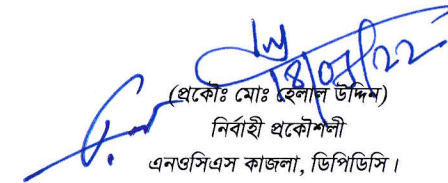 (প্রকৌঃ মোঃ হেলাল উদ্দিন)
নির্বাহী প্রকৌশলী
এনওসিএস কাজলা, ডিপিডিসি।